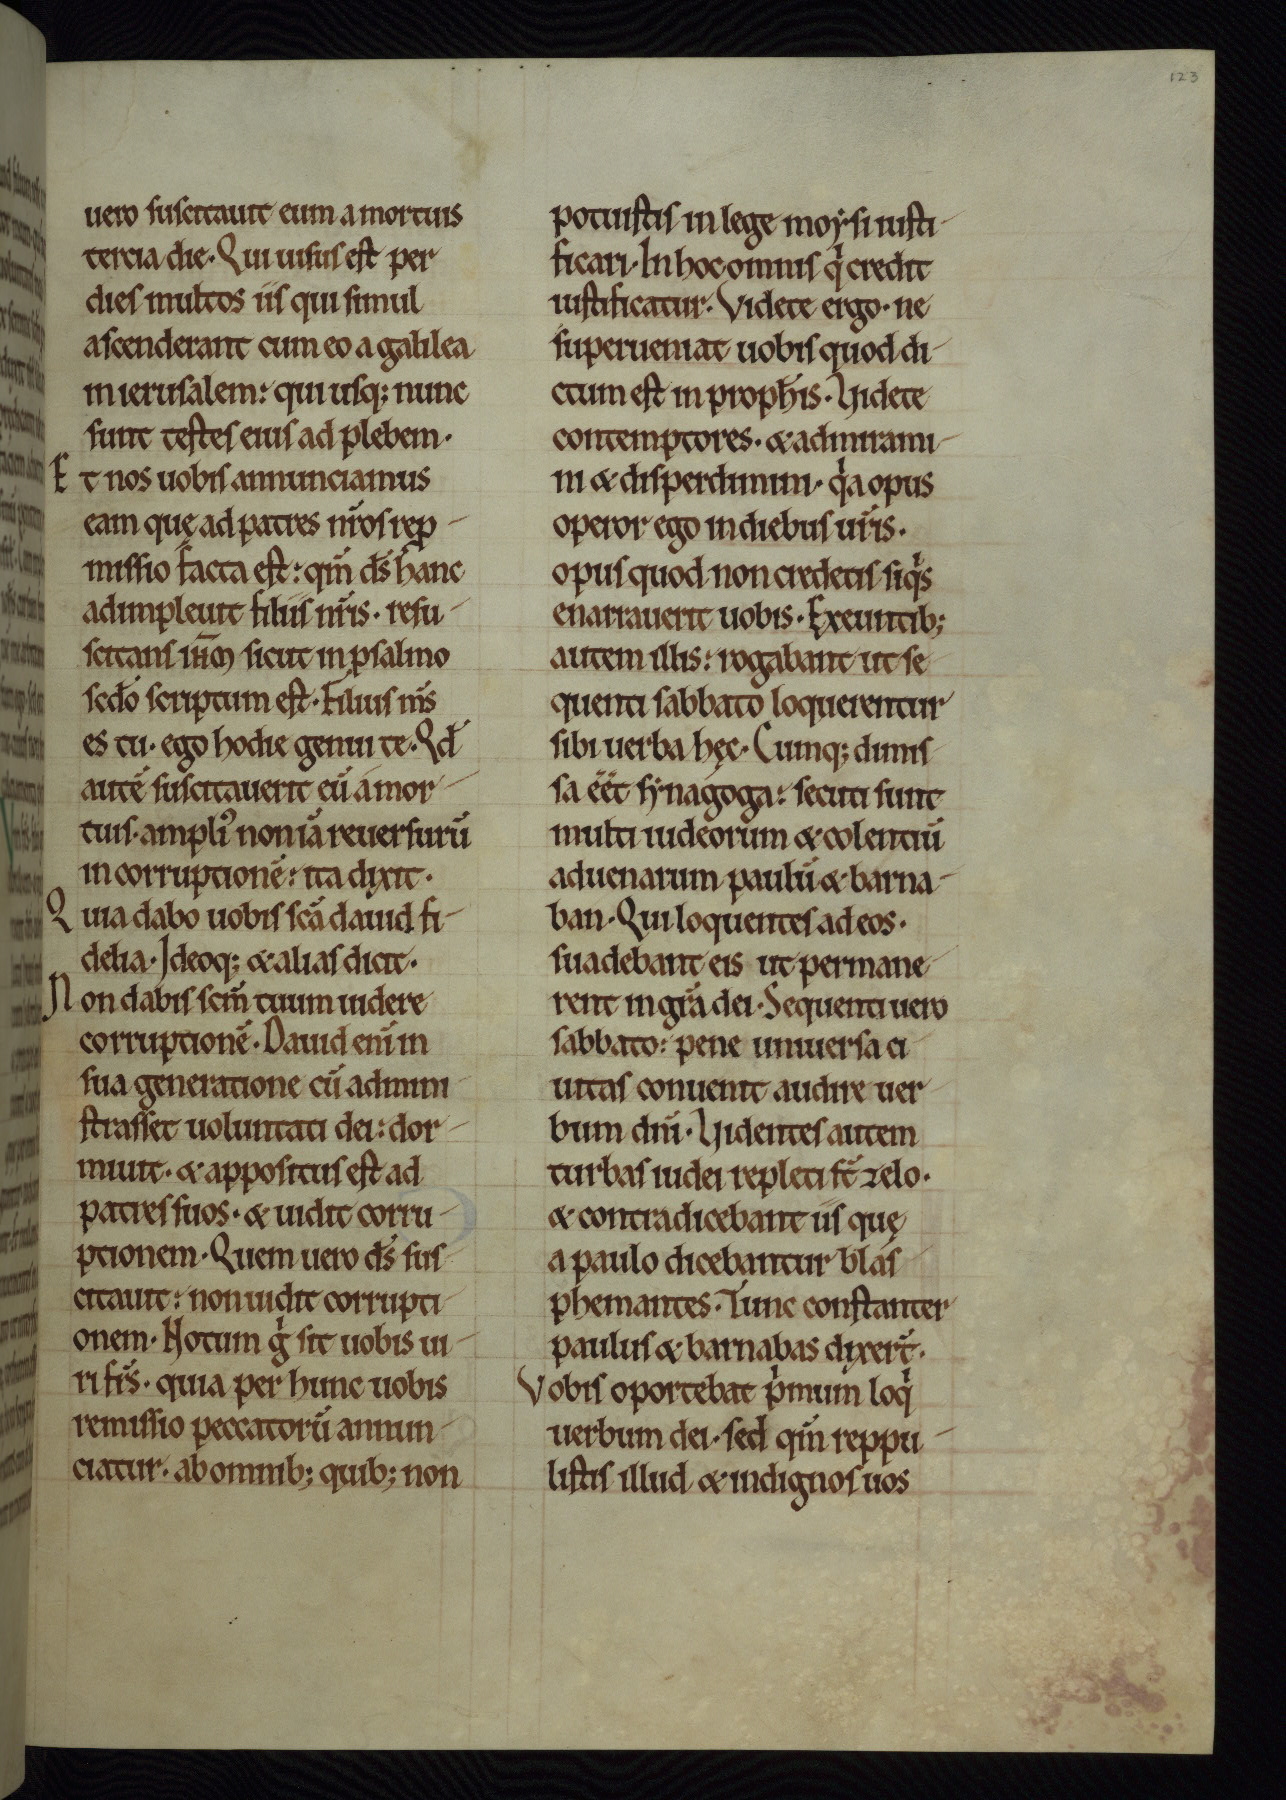 123
uero suscitauit eum a mortuis
tercia die. Qui uisus est per
dies multos iis qui simul
ascenderant cum eo a galilea
in ierusalem: qui usq; nunc
sunt testes eius ad plebem.
Et nos uobis annunciamus
eam quę ad patres nr̃os rep-
missio facta est: qm̃ ds̃ hanc
adimpleuit filiis nr̃is. resu-
scitans ih̅m sicut in psalmo
scd̃o scriptum est. Filius ms̃
es tu. ego hodie genui te. Qd̃
autẽ suscitauerit eũ a mor-
tuis. ampli᾿ non iã reuersurũ
in corruptionẽ: ita dixit.
Quia dabo uobis scã dauid fi-
delia. Ideoq; & alias dicit.
Non dabis scm̃ tuum uidere
corruptionẽ. Dauid enĩ in
sua generatione cũ admini-
strasset uoluntati dei: dor-
miuit. & appositus est ad
patres suos. & uidit corru-
ptionem. Quem uero ds̃ sus-
citauit: non uidit corrupti-
onem. Notum gͥ sit uobis ui-
ri fr̃s. quia per hunc uobis
remissio peccatorũ annun-
ciatur. ab omnib; quib; non
potuistis in lege moysi iusti-
ficari. In hoc omnis qͥ credit
iustificatur. Videte ergo. ne
superueniat uobis quod di-
ctum est in proph̃is. Videte
contemptores. & admirami-
ni & disperdimini. qͥa opus
operor ego in diebus ur̃is.
opus quod non credetis siqͥs
enarrauerit uobis. Exeuntib;
autem illis: rogabant ut se-
quenti sabbato loquerentur
sibi uerba hęc. Cumq; dimis-
sa eẽt synagoga: secuti sunt
multi iudeorum & colentiũ
aduenarum paulũ & barna-
ban. Qui loquentes ad eos.
suadebant eis ut permane-
rent in gr̃a dei. Sequenti uero
sabbato: pene uniuersa ci-
uitas conuenit audire uer-
bum dnĩ. Videntes autem
turbas iudei repleti st̃ zelo.
& contradicebant iis quę
a paulo dicebantur blas-
phemantes. Tunc constanter
paulus & barnabas dixert̃.
Vobis oportebat pͥmum loqͥ
uerbum dei. sed qm̃ reppu-
listis illud & indignos uos